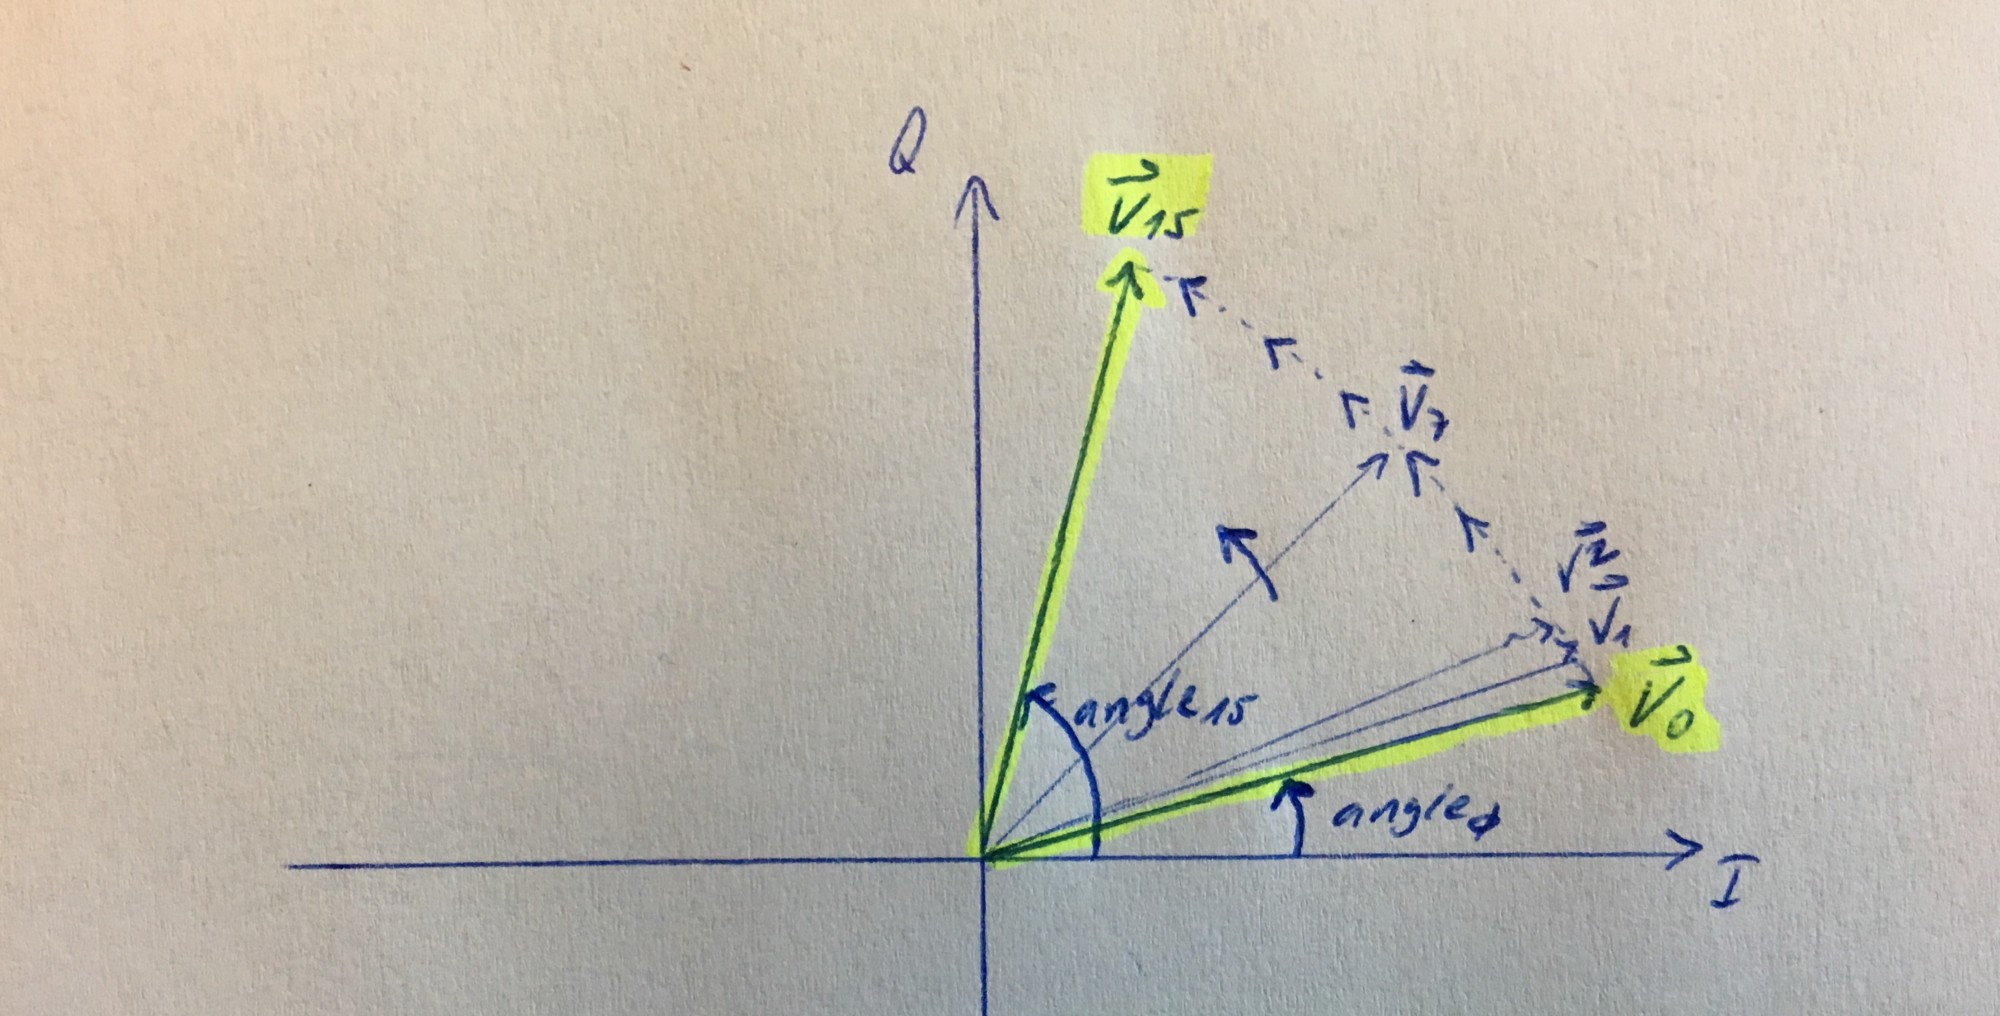 Q
V⃗15
V⃗7
V⃗2
V⃗1
V⃗0
angle15
angleϕ
I